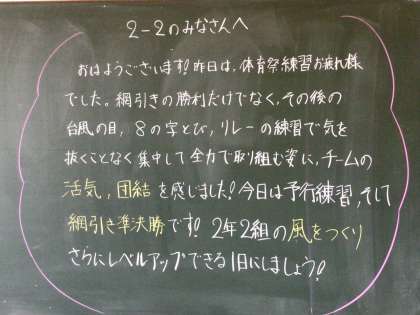 2-2のみなさんへ
おはようございます！昨日は、体育祭練習お疲れ様
でした。綱引きの勝利だけでなく、その後の
台風の目、8の字とび、リレーの練習で気を
抜くことなく集中して全力で取り組む姿に、チームの
活気、団結を感じました！今日は予行練習、そして
綱引き準決勝です！2年2組の風をつくり
さらにレベルアップできる1日にしましょう！